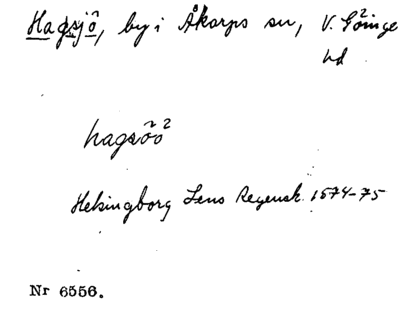 Hagsjö, by i Åkarps sn, V. Göinge
hd
hagsöo²
Helsingborg Lens Regensk. 1574-75
Nr 6556.